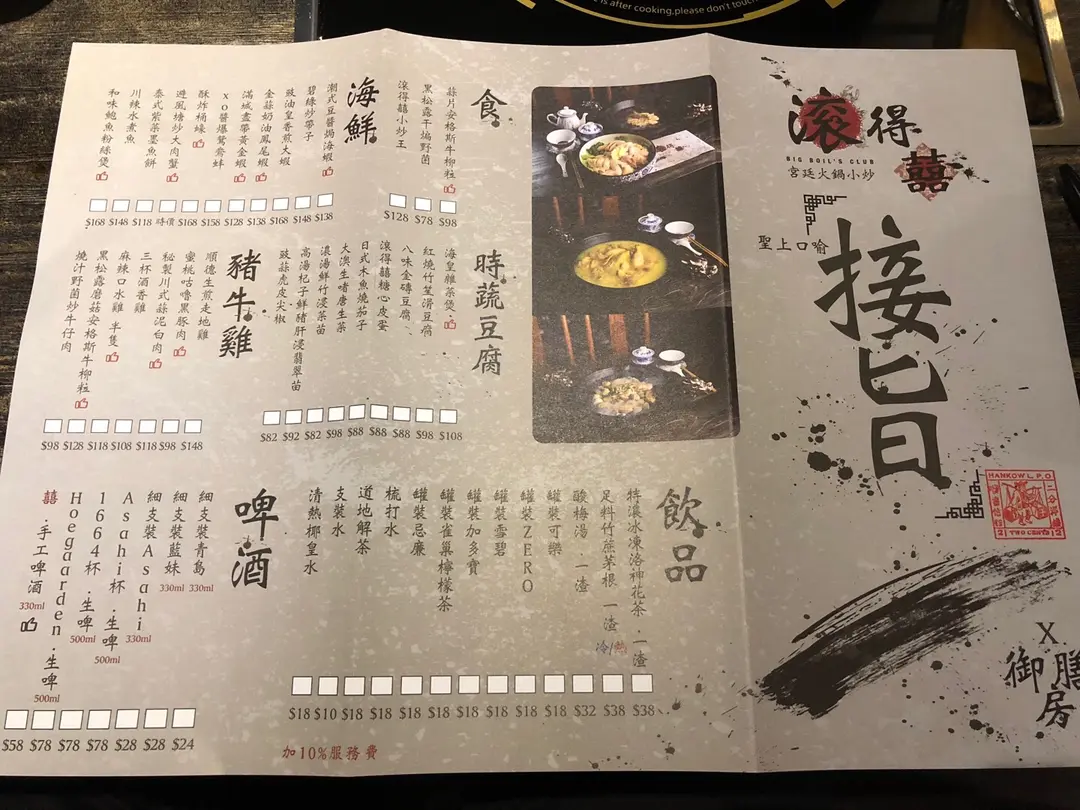 is after cooking,please don't touch
滾得囍
BIG BOIL'S CLUB
宮廷火鍋小炒
聖上口喻
接旨
HANKOW L. P. O
TWO CENTS
X
御膳房
食
蒜片安格斯牛柳粒
$98
黑松露干煸野菌
$78
滾得囍小炒王
$128
海鮮
潮式豆醬焗海蝦
$138
碧綠炒帶子
$148
豉油皇香煎大蝦
$168
金蒜奶油鳳尾蝦
$138
滿城盡帶黃金蝦
$128
xo醬爆鴛鴦蚌
$158
酥炸桶蠔
$168
避風塘炒大肉蟹
時價
泰式紫菜墨魚餅
$118
川辣水煮魚
$148
和味鮑魚粉絲煲
$168
時蔬豆腐
海皇雜菜煲
$108
紅燒竹笙滑豆腐
$98
八味金磚豆腐
$88
滾得囍糖心皮蛋
$88
日式木魚燒茄子
$88
大澳生啫唐生菜
$98
濃湯鮮竹浸菜苗
$82
高湯杞子鮮豬肝浸翡翠苗
$92
豉蒜虎皮尖椒
$82
豬牛雞
順德生煎走地雞
$148
蜜桃咕嚕黑豚肉
$98
秘製川式蒜泥白肉
$98
三杯酒香雞
$118
麻辣口水雞 半隻
$108
黑松露蘑菇安格斯牛柳粒
$118
燒汁野菌炒牛仔肉
$128
$98
飲品
特濃冰凍洛神花茶 一渣
$38
足料竹蔗茅根 一渣
冷/熱
$38
酸梅湯 一渣
$32
罐裝可樂
$18
罐裝ZERO
$18
罐裝雪碧
$18
罐裝加多寶
$18
罐裝雀巢檸檬茶
$18
罐裝忌廉
$18
梳打水
$18
道地解茶
$18
支裝水
$10
清熱椰皇水
$18
啤酒
細支裝青島
330ml
$24
細支裝藍妹
330ml
$28
細支裝Asahi
330ml
$28
Asahi杯.生啤
500ml
$78
1664杯.生啤
500ml
$78
Hoegaarden.生啤
500ml
$78
囍.手工啤酒
330ml
$58
加10%服務費